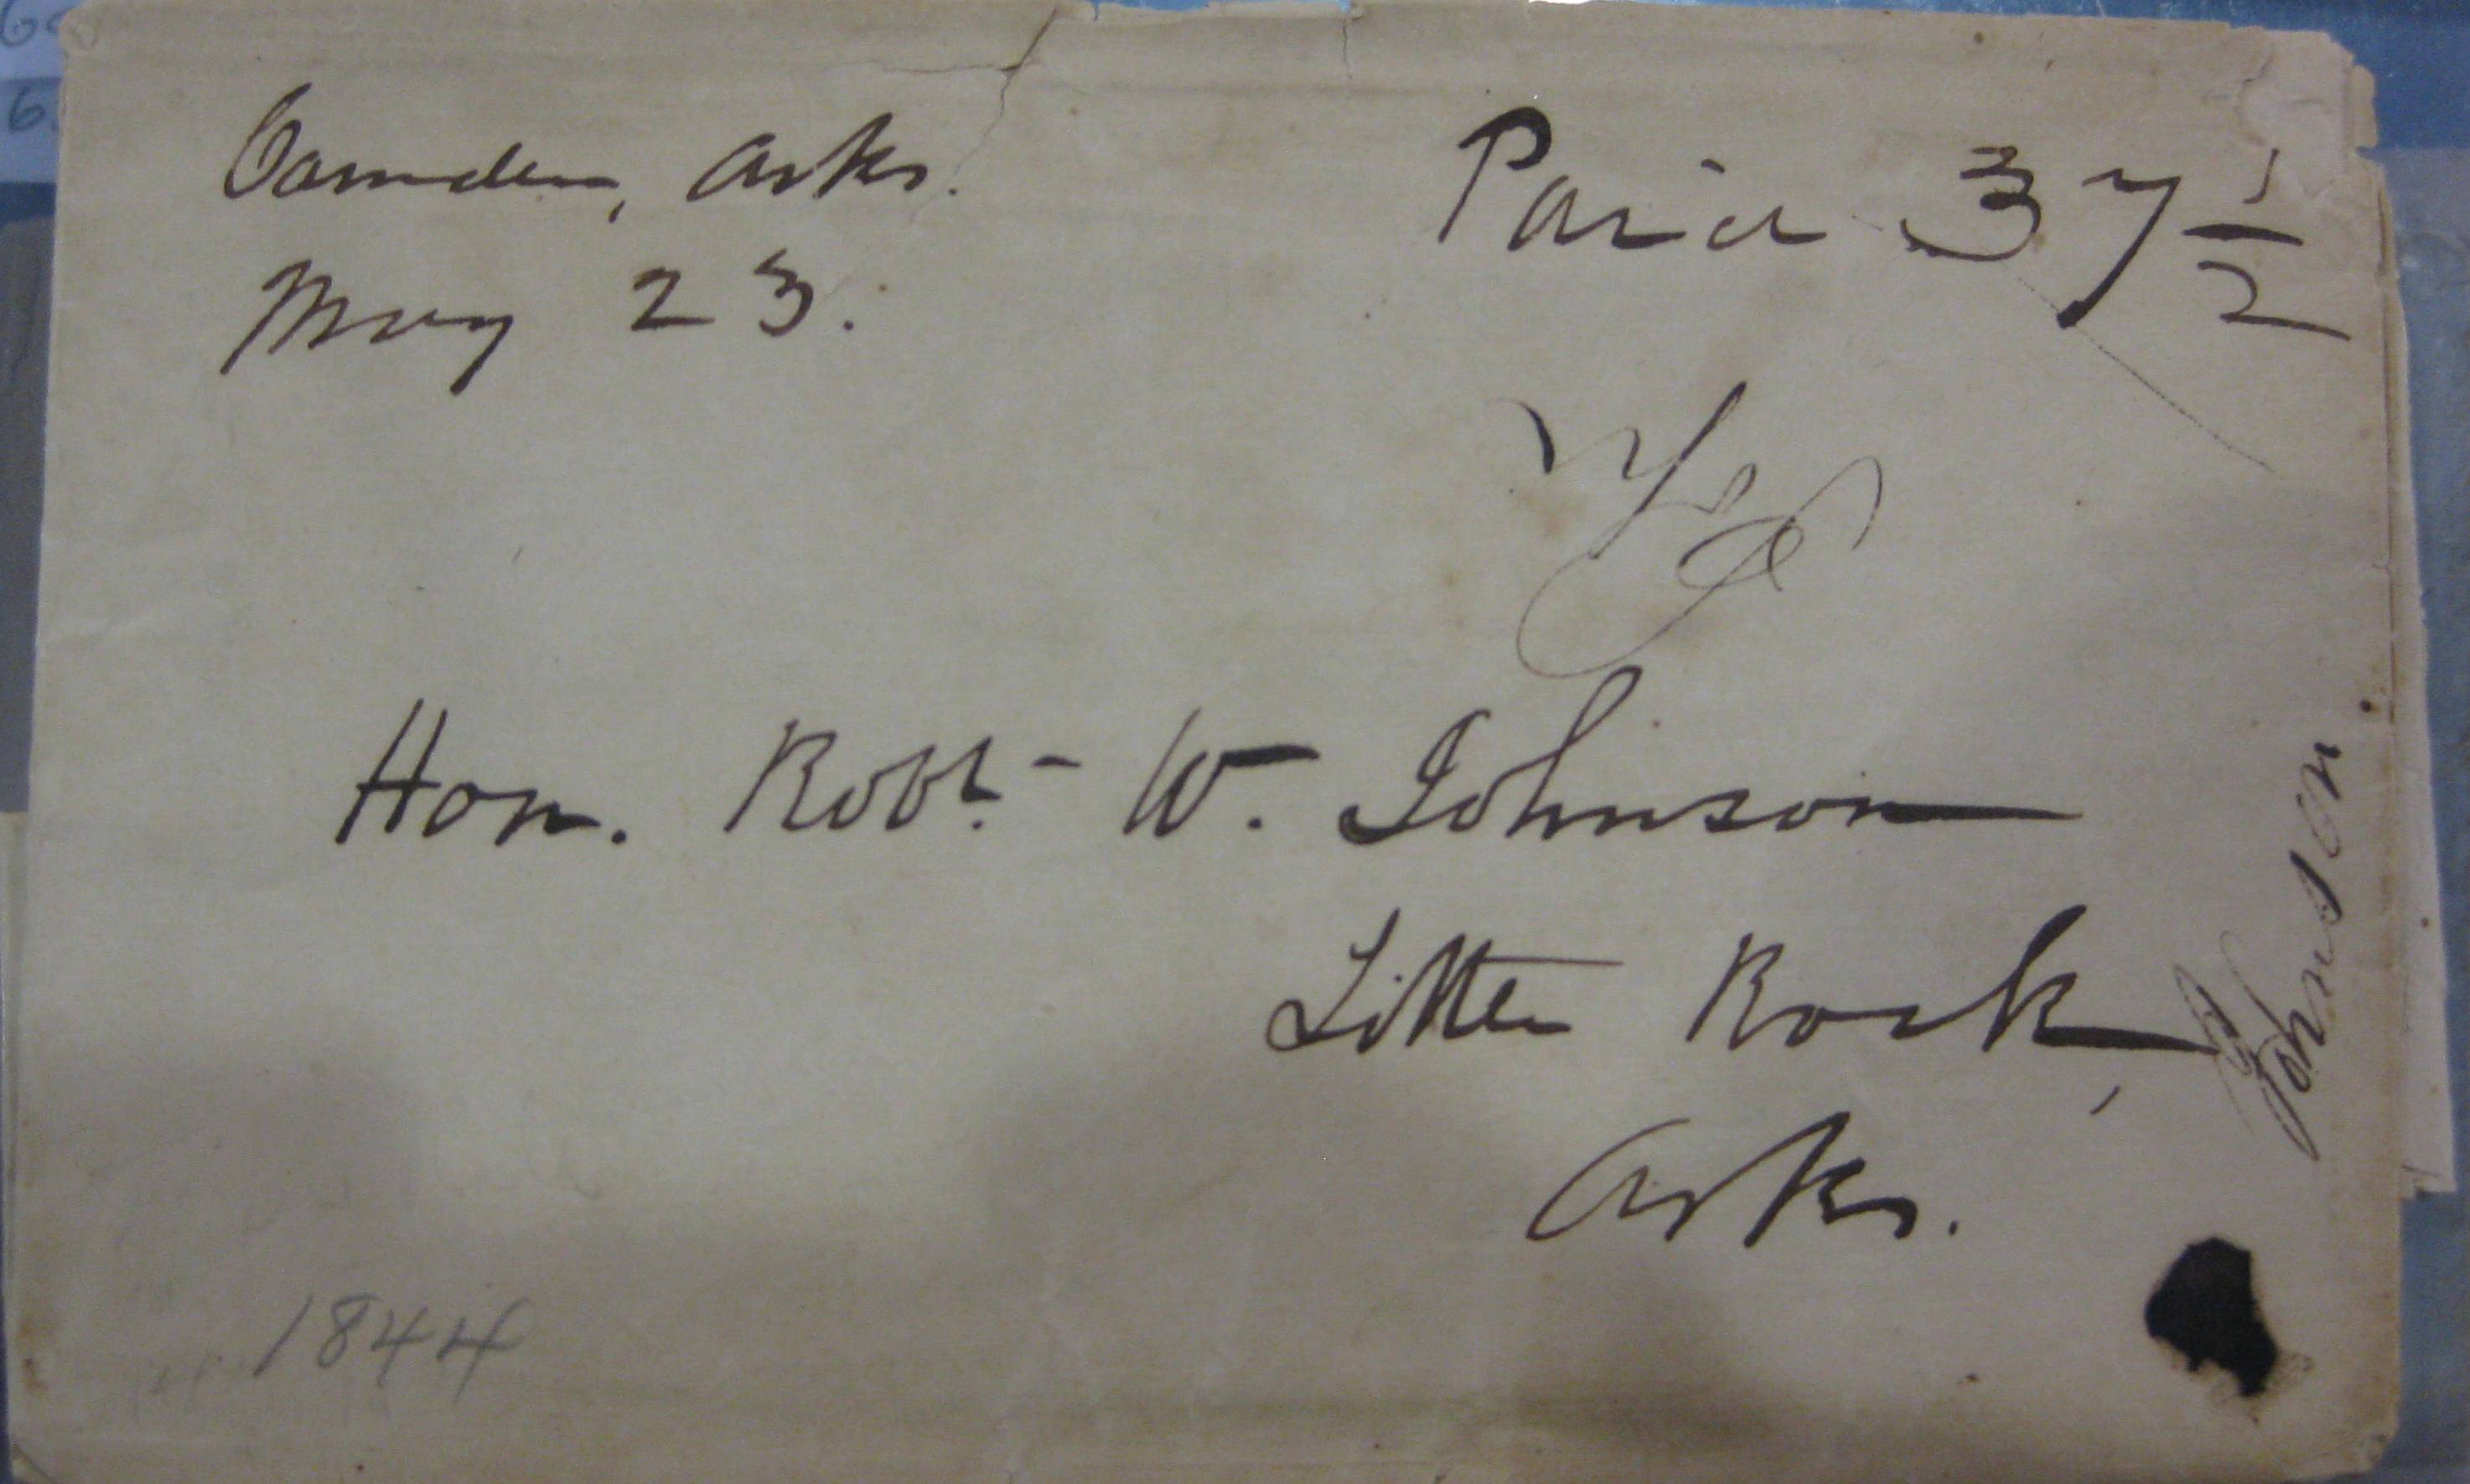 Camden, Arks.
May 23.
Paid 37 1/2
Hon. Robt. W. Johnson
Little Rock,
Arks.
Johnson.
1844